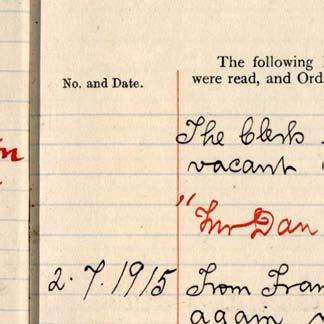 The following
were read, and Ord
No. and Date.
The Clerk
vacant
Dan
2.7.1915 From Fran
again